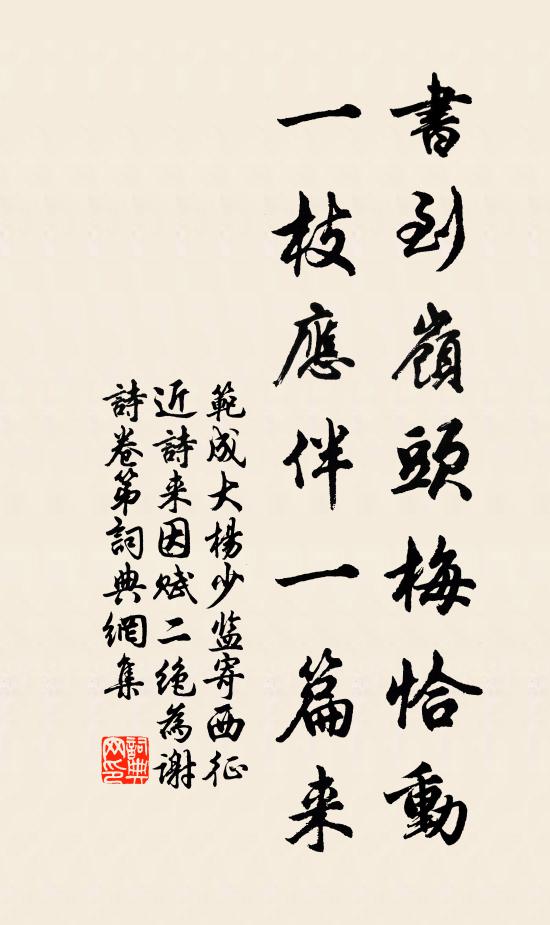 書到嶺頭梅恰動
一枝應伴一篇来
範成大楊少监寄西征
近詩来因赋二绝為谢
詩卷第詞典網集
詞典
网印